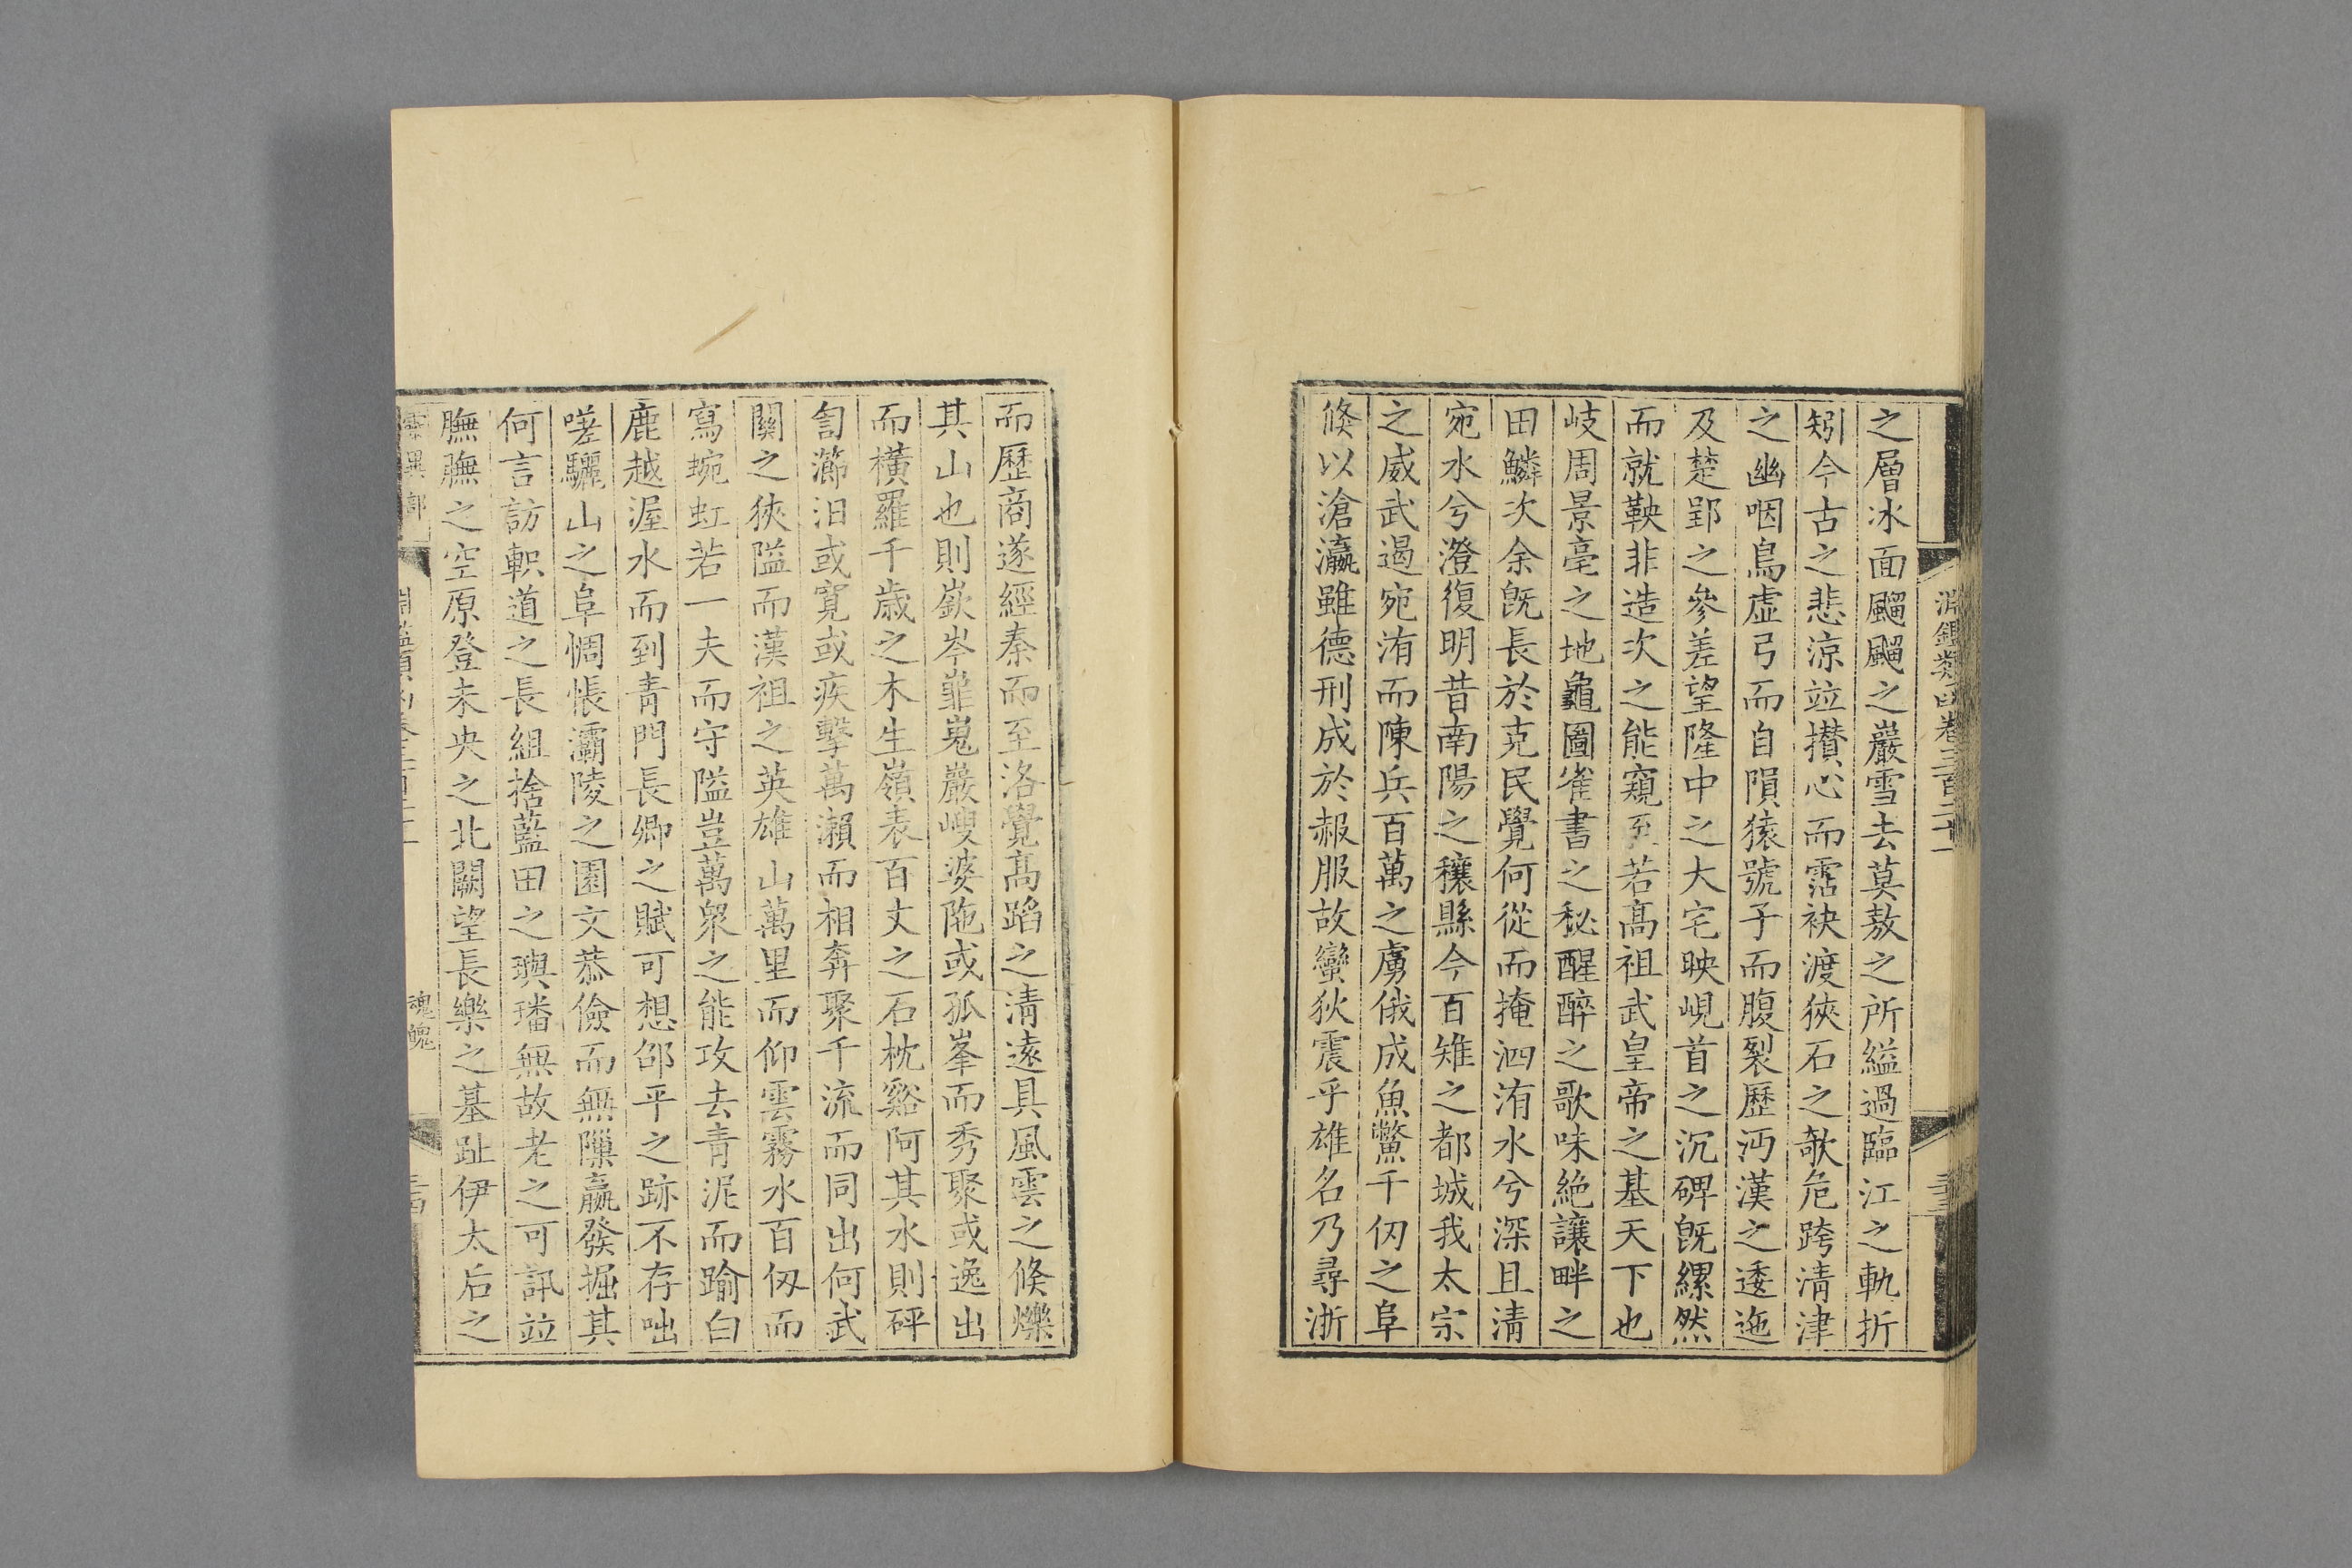 淵鑑類函卷三百二十一
三十三
之層冰面飀飀之巖雪去莫敖之所縊過臨江之軌折
矧今古之悲涼竝攢心而霑袂渡狹石之欹危跨清津
之幽咽鳥虛弓而自隕猿號子而腹裂歷沔漢之逶迤
及楚郢之參差望隆中之大宅映峴首之沉碑旣縲然
而就鞅非造次之能窺至若高祖武皇帝之基天下也
岐周景亳之地龜圖雀書之秘醒醉之歌味絶讓畔之
田鱗次余旣長於克民覺何從而掩泗洧水兮深且清
宛水兮澄復明昔南陽之穰縣今百雉之都城我太宗
之威武遏宛洧而陳兵百萬之虜俄成魚鱉千仞之阜
倏以滄瀛雖德刑成於赧服故蠻狄震乎雄名乃尋浙
而歷商遂經秦而至洛覺高蹈之清遠具風雲之倏爍
其山也則嶔岑嶵嵬巖嵕婆陁或孤峯而秀聚或逸出
而橫羅千歲之木生嶺表百丈之石枕谿阿其水則砰
訇瀄汨或寬或疾擊萬瀨而相奔聚千流而同出何武
關之狹隘而漢祖之英雄山萬里而仰雲霧水百仭而
寫蜿虹若一夫而守隘豈萬衆之能攻去青泥而踰白
鹿越渥水而到青門長卿之賦可想邵平之跡不存咄
嗟驪山之阜惆悵灞陵之園文恭儉而無隟嬴發掘其
何言訪軹道之長組捨藍田之璵璠無故老之可訊竝
膴膴之空原登未央之北闕望長樂之基趾伊太后之
靈異部
魂魄
三十四